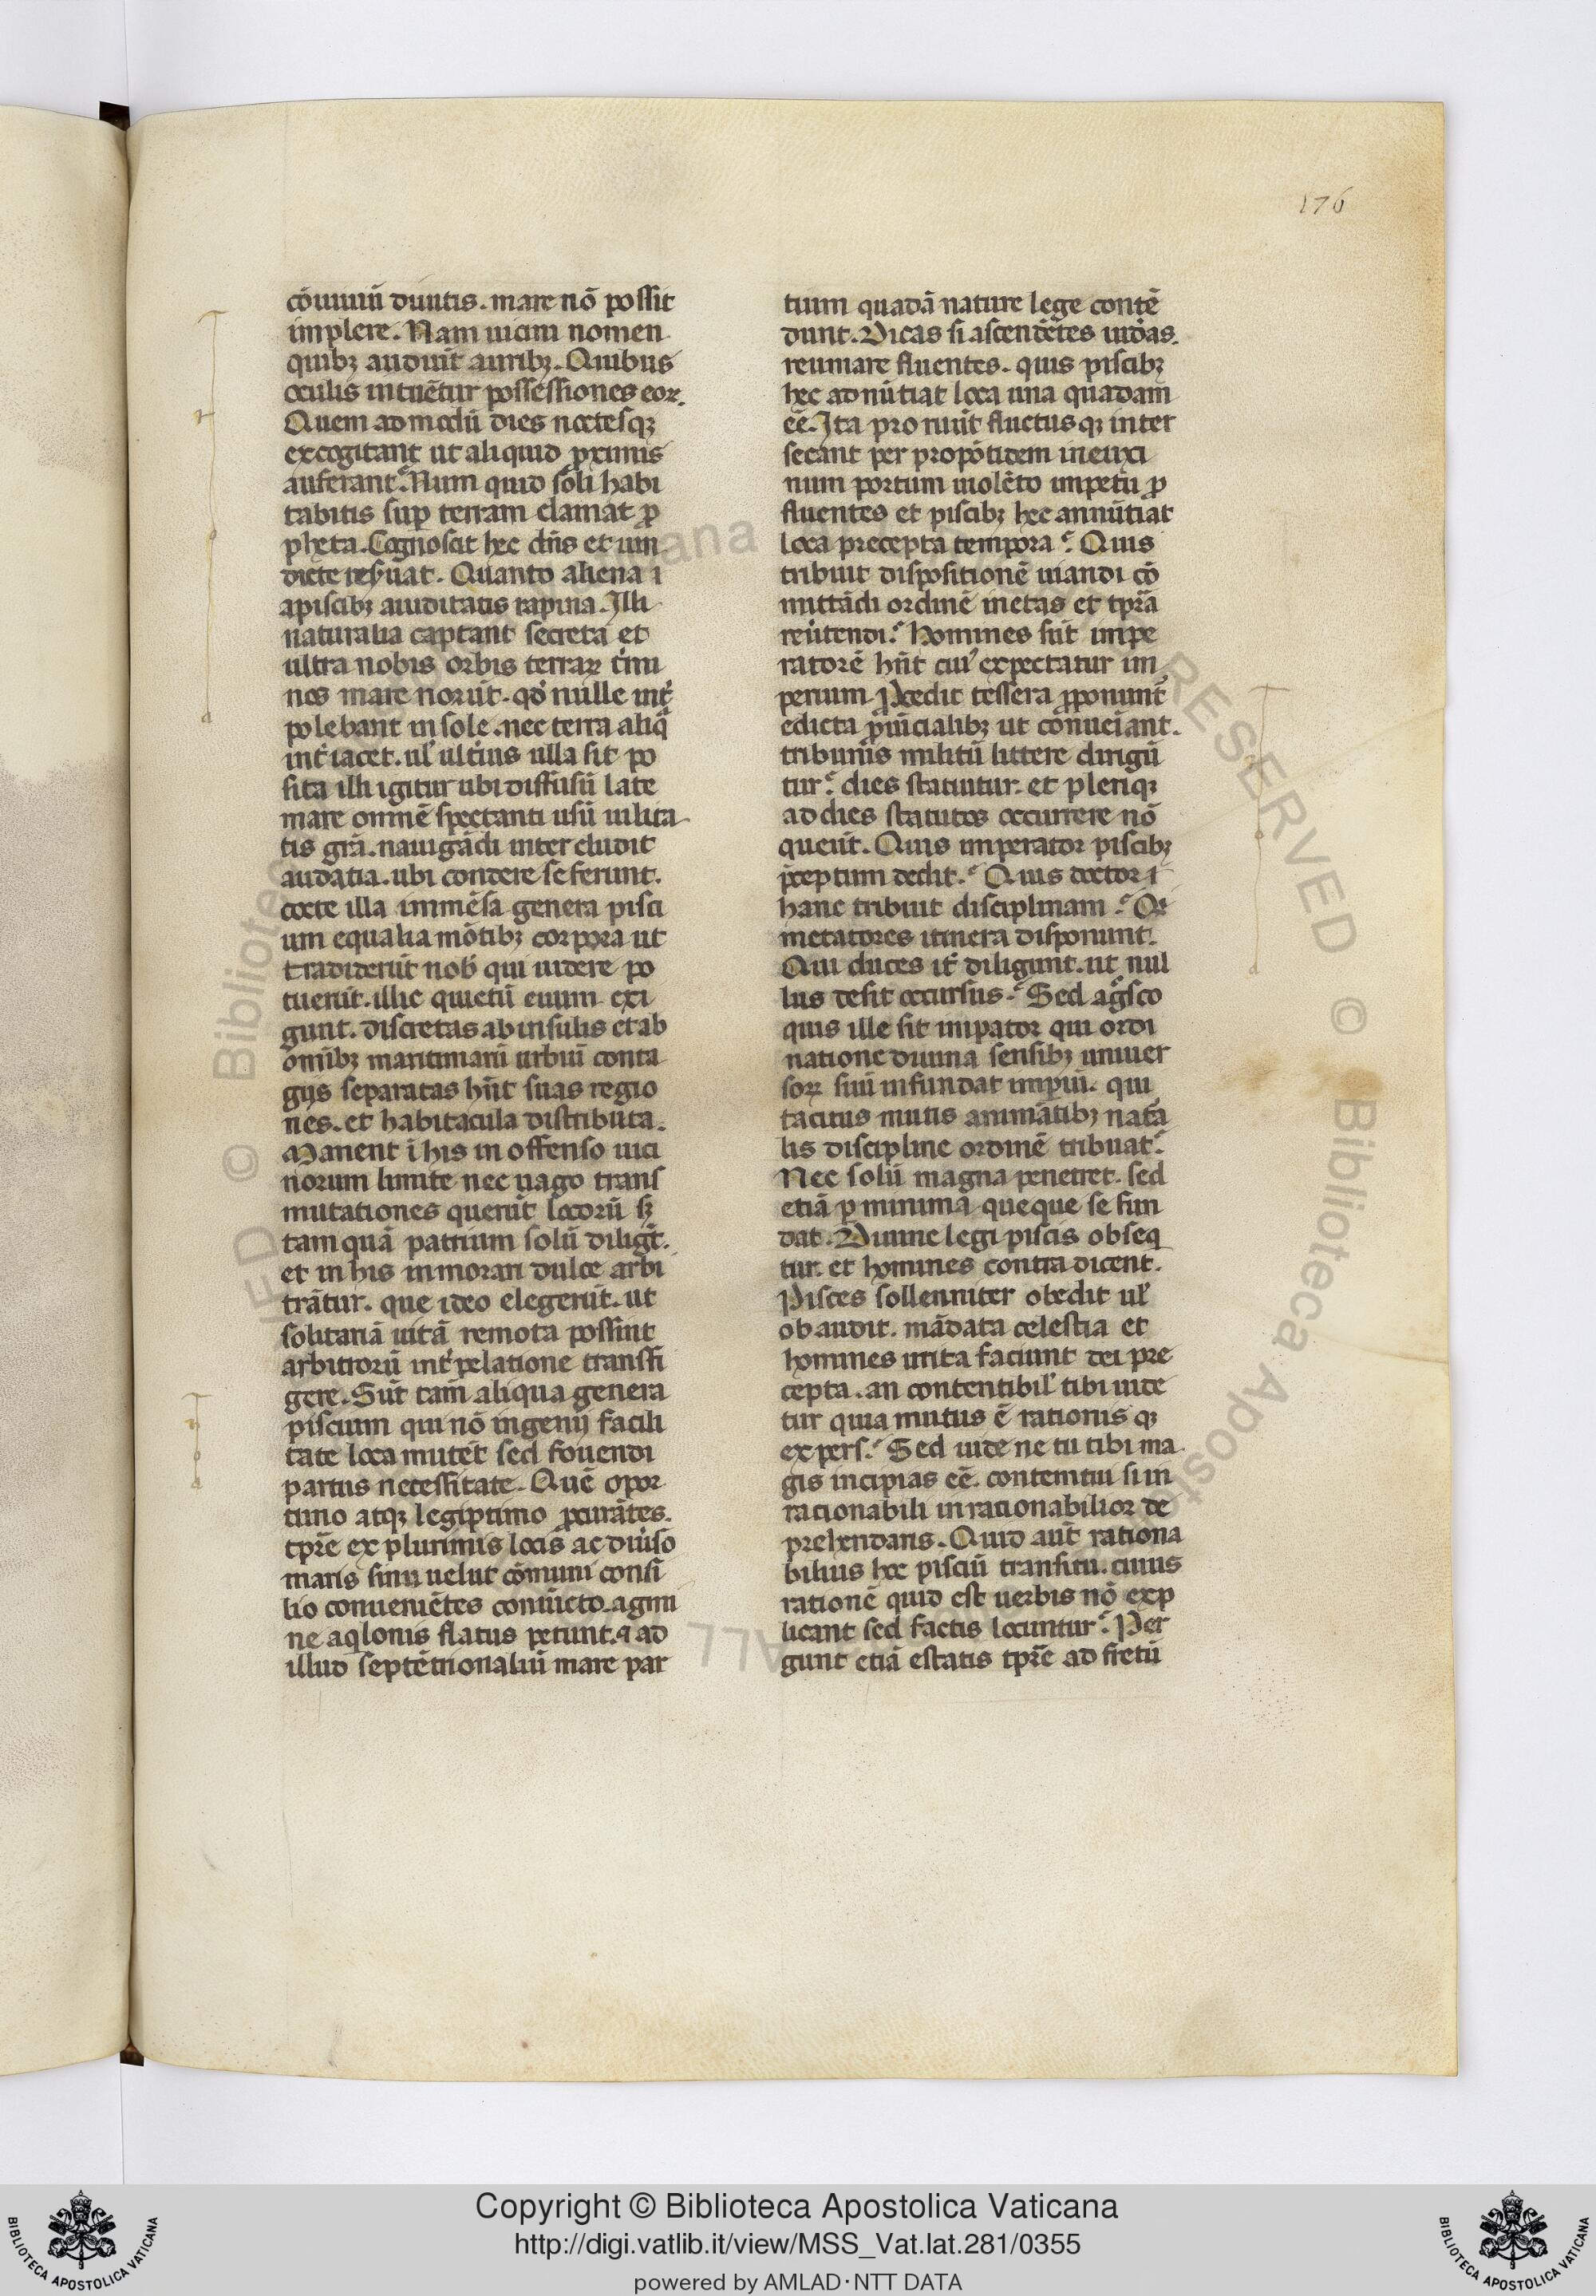 176
cōuiuiū diuitis. mare nō possit
implere. Nam uicini nomen
quibꝫ audiuit auribꝫ. Quibus
oculis intuētur possessiones eoꝝ.
Quem ad modū dies noctesqꝫ
excogitant ut aliquid ꝓximis
auferant. Num quid soli habi
tabitis suꝑ terram clamat ꝓ
pheta. Cognoscit hec dn̄s et uin
dicte res̄uat. Quanto aliena ī
a piscibꝫ auiditatis rapina. Illi
naturalia captant secreta et
ultra nobis orbis terraꝝ t̄mi
nos mare norūt. qd̓ nulle int̄
polebant insole. nec terra aliq̄
int̄iacet. ul̓ ult̄ius ulla sit po
sita illi igitur ubi diffusū late
mare omnē spectanti usū uilita
tis grā. nauigādi intercludit
audatia. ubi condere se ferunt.
cocte illa immēsa genera pisci
um equalia mōtibꝫ corpora ut
tradiderūt nob̓ qui uidere po
tuerūt. illic quietū euum exi
gunt. discretas ab insulis et ab
omībꝫ maritimarū urbiū conta
gijs separatas hn̄t suas regio
nes. et habitacula distributa.
Manent ī his in offenso uici
norum limite nec uago trans
mutationes querūt locorū sꝫ
tam quā patrium solū diligt̄.
et in his inmorari dulce arbi
trātur. que ideo elegerūt. ut
solitariā uitā remota possint
arbitrorū int̄pelatione transfi
gere. Sūt tam̄ aliqua genera
piscium qui nō ingenij facili
tate loca mutēt sed fouendi
partus necessitate. Quē opor
tuno atqꝫ legiptimo ꝓcurātes.
tp̄re ex plurimis locis ac diūso
maris sinu uelut cōmuni consi
lio conueniētes coniūcto. agmi
ne aqlonis flatus petunt. ⁊ ad
illud septētrionaliū mare par
tium quadā nature lege contē
dunt. Dicas si ascendētes uid̓as.
reumare fluentes. quis piscibꝫ
hec adnūtiat loca una quadam
eē. Ita proruūt fluctusqꝫ inter
secant per propōtidem in euxi
num portum uiolēto impetū ꝓ
fluentes et piscibꝫ hec annūtiat
loca precepta tempora. Quis
tribuit dispositionē uiandi cō
mittādi ordinē metas et tp̄ra
reūtendi. Homines sūt impe
ratorē hn̄t cui᷒ expectatur im
perium. Ꝓcedit tessera ꝓponunt̄
edicta ꝓuīcialibꝫ ut conueīant.
tribunis militū littere dirigū
tur. dies statuitur. et pleriqꝫ
ad dies statutos occurrere nō
queūt. Quis imperator piscibꝫ
p̄ceptum dedit. Quis doctor ī
hanc tribuit disciplinam. Qi
metatores itinera disponunt.
Qui duces it̄ diligunt. ut nul
lus desit occursus. Sed ag̓sco
quis ille sit imꝑator qui ordi
natione diuina sensibꝫ uniuer
soꝝ suū infundat imꝑiū. qui
tacitus mutis animātibꝫ nat̄a
lis discipline ordinē tribuat.
Nec solū magna penetret. sed
etiā ꝑ minima queque se fun
dat. Diuine legi piscis obseq
tur. et homines contradicent.
Pisces sollenniter obedit ul̓
obaudit. mādata celestia et
homines irrita faciunt dei pre
cepta. an contentibil᷒ tibi uide
tur quia mutus ē rationis qꝫ
expers. Sed uide ne tu tibi ma
gis incipias eē. contemtui si in
racionabili inrationabilior de
prehendaris. Quid aut̄ rationa
bilius hoc pisciū transitu. cuius
rationē quid est uerbis nō exp
licant sed factis locuntur. Per
gunt etiā estatis tp̄re ad fretū
Copyright © Biblioteca Apostolica Vaticana
http://digi.vatlib.it/view/MSS_Vat.lat.281/0355
powered by AMLAD·NTT DATA